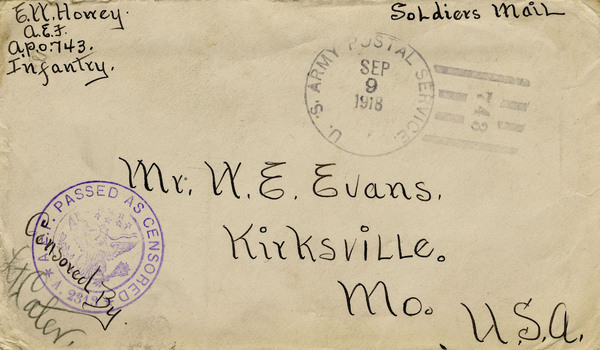 E.W. Howey.
A.E.F.
A.P.O. 743.
Infantry.
Soldiers Mail
U. S. ARMY POSTAL SERVICE.
SEP
9
1918
743
Mr. W. E. Evans.
Kirksville.
Mo.
U.S.A.
A.E.F. PASSED AS CENSORED
Censored By.